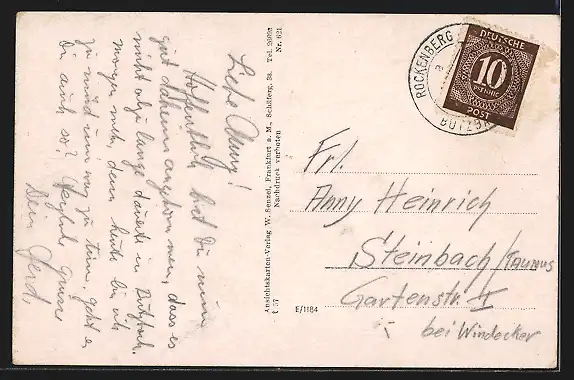 Liebe Anny!
Hoffentlich bist Du nun
gut daheim angekommen, dass es
nicht allzu lange dauerte in Butzbach.
morgen mehr, denn heute bin ich
zu müd um was zu tun. Geht es
Dir auch so? Herzliche Grüsse
Dein Gerd.
Ansichtskarten-Verlag W. Senzel, Frankfurt a. M., Schillerg. Tel.
Nachdruck verboten
Nr. 621
E/1184
ROCKENBERG
BUTZBA
DEUTSCHE
10
PFENNIG
POST
Frl.
Anny Heinrich
Steinbach/TAUNUS
Gartenstr. II
bei Windecker